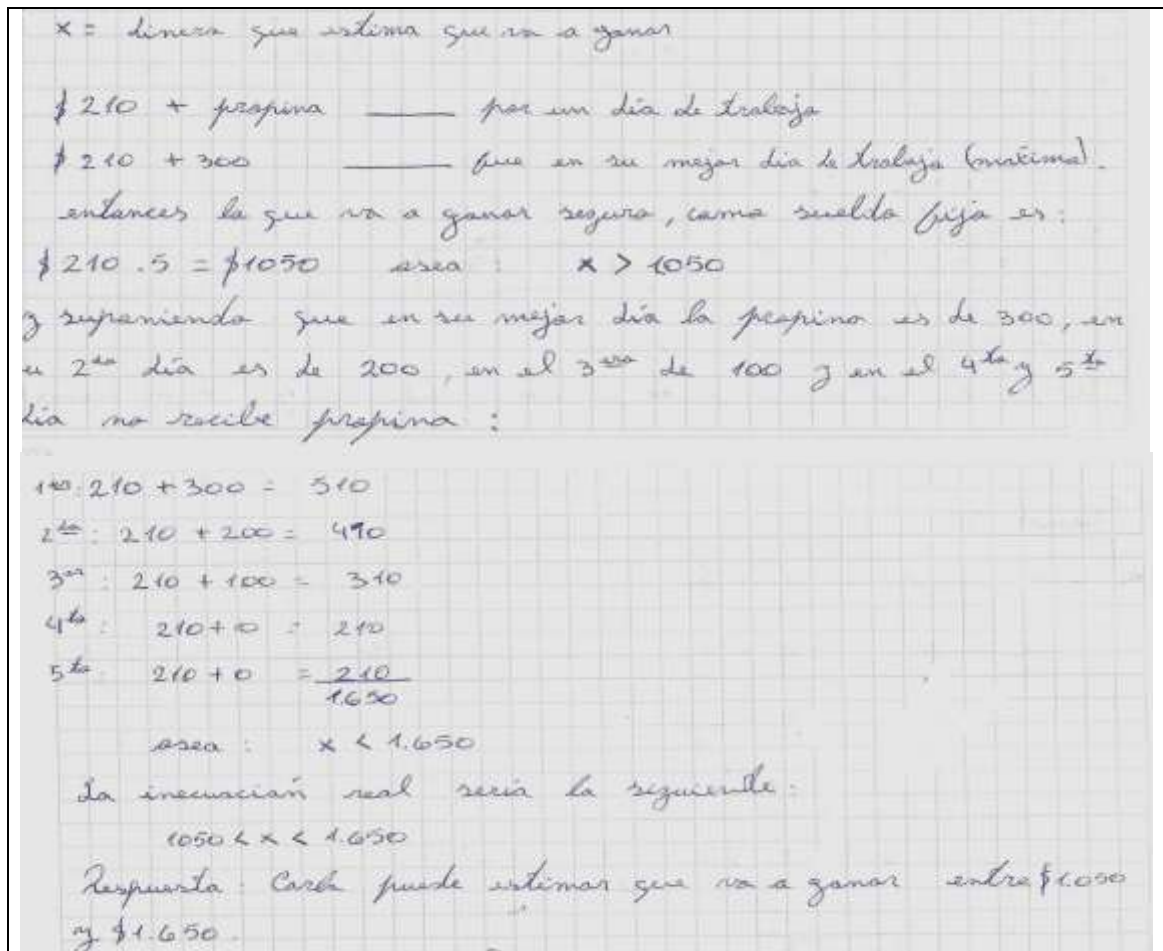 x = dinero que estima que va a ganar
$ 210 + propina ____ por un día de trabajo
$ 210 + 300 ____ fue en su mejor día de trabajo (máxima).
entonces lo que va a ganar seguro, como sueldo fijo es:
$ 210 . 5 = $1050 osea : x > 1050
y suponiendo que en su mejor día la propina es de 300, en
u 2do día es de 200, en el 3ero de 100 y en el 4to y 5to
día no recibe propina :
1ro: 210 + 300 = 510
2do : 210 + 200 = 410
3er : 210 + 100 = 310
4to : 210 + 0 = 210
5to : 210 + 0 = 210
1.650
osea : x < 1.650
La inecuación real sería la siguiente:
1050 < x < 1.650
Respuesta : Carla puede estimar que va a ganar entre $1.050
y $1.650.